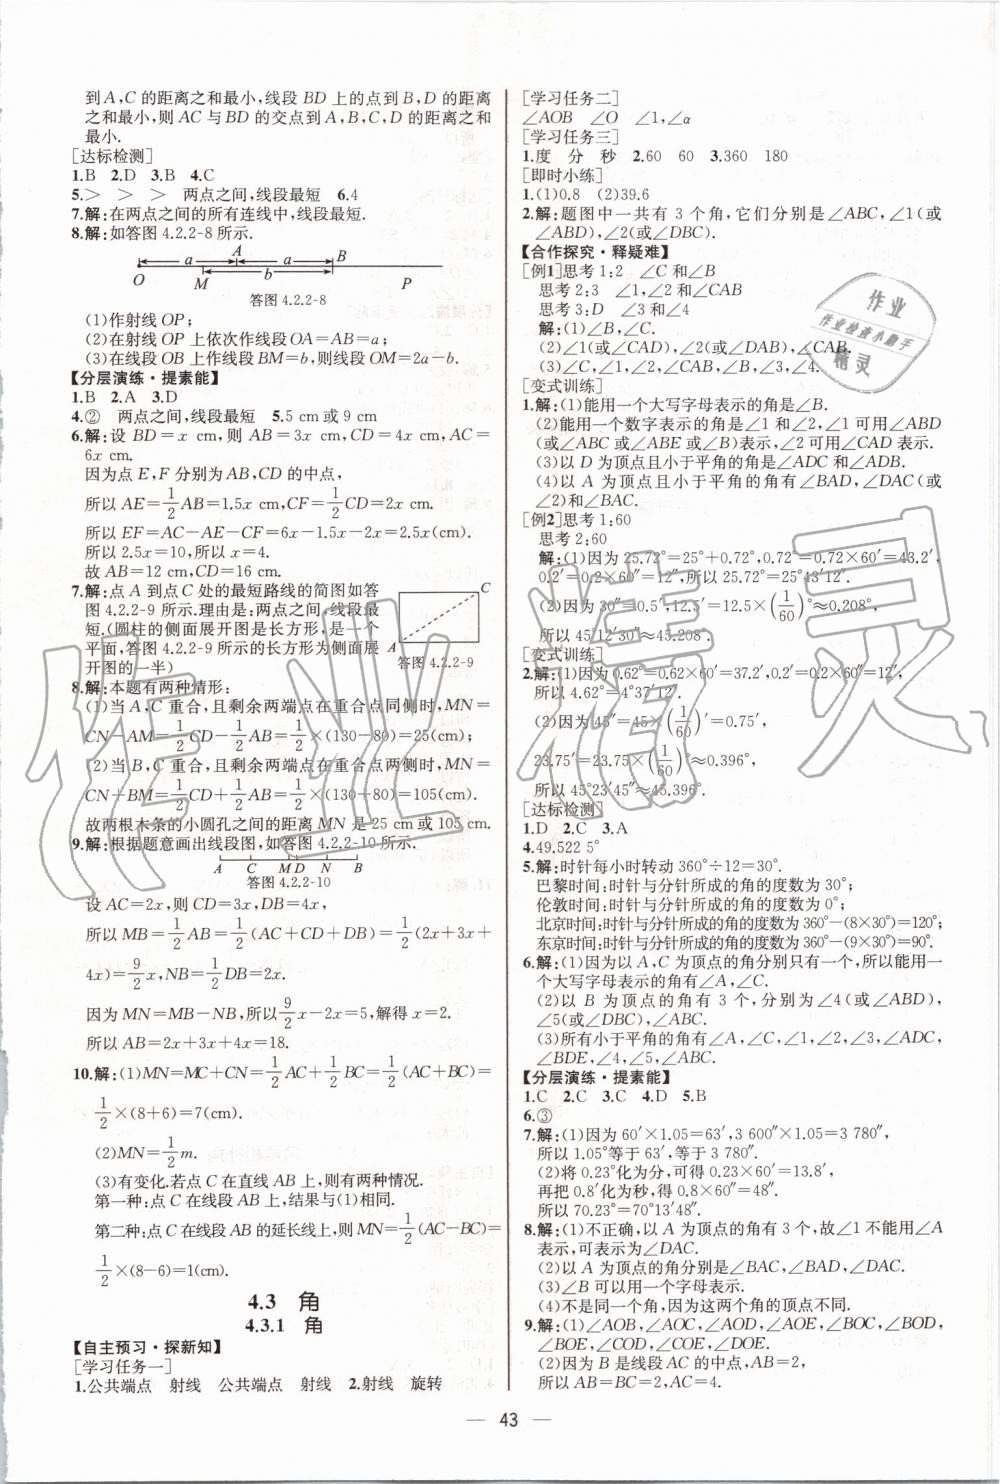 到A,C的距离之和最小,线段BD上的点到B,D的距离
之和最小,则AC与BD的交点到A,B,C,D的距离之和
最小.
[达标检测]
1.B 2.D 3.B 4.C
5.> > > 两点之间,线段最短 6.4
7.解:在两点之间的所有连线中,线段最短.
8.解:如答图4.2.2-8所示.
a A a B
O M b P
答图4.2.2-8
(1)作射线OP;
(2)在射线OP上依次作线段OA=AB=a;
(3)在线段OB上作线段BM=b,则线段OM=2a-b.
【分层演练·提素能】
1.B 2.A 3.D
4.② 两点之间,线段最短 5.5 cm或9 cm
6.解:设BD=x cm,则AB=3x cm,CD=4x cm,AC=
6x cm.
因为点E,F分别为AB,CD的中点,
所以AE=1/2AB=1.5x cm,CF=1/2CD=2x cm.
所以EF=AC-AE-CF=6x-1.5x-2x=2.5x(cm).
所以2.5x=10,所以x=4.
故AB=12 cm,CD=16 cm.
7.解:点A到点C处的最短路线的简图如答
图4.2.2-9所示.理由是:两点之间,线段最
短.(圆柱的侧面展开图是长方形,是一个
平面,答图4.2.2-9所示的长方形为侧面展
开图的一半)
C
A
答图4.2.2-9
8.解:本题有两种情形:
(1)当A,C重合,且剩余两端点在重合点同侧时,MN=
CN-AM=1/2CD-1/2AB=1/2×(130-80)=25(cm);
(2)当B,C重合,且剩余两端点在重合点两侧时,MN=
CN+BM=1/2CD+1/2AB=1/2×(130+80)=105(cm).
故两根木条的小圆孔之间的距离MN是25 cm或105 cm.
9.解:根据题意画出线段图,如答图4.2.2-10所示.
A C M D N B
答图4.2.2-10
设AC=2x,则CD=3x,DB=4x,
所以MB=1/2AB=1/2(AC+CD+DB)=1/2(2x+3x+
4x)=9/2x,NB=1/2DB=2x.
因为MN=MB-NB,所以9/2x-2x=5,解得x=2.
所以AB=2x+3x+4x=18.
10.解:(1)MN=MC+CN=1/2AC+1/2BC=1/2(AC+BC)=
1/2×(8+6)=7(cm).
(2)MN=1/2m.
(3)有变化.若点C在直线AB上,则有两种情况.
第一种:点C在线段AB上,结果与(1)相同.
第二种:点C在线段AB的延长线上,则MN=1/2(AC-BC)=
1/2×(8-6)=1(cm).
4.3 角
4.3.1 角
【自主预习·探新知】
[学习任务一]
1.公共端点 射线 公共端点 射线 2.射线 旋转
[学习任务二]
∠AOB ∠O ∠1,∠α
[学习任务三]
1.度 分 秒 2.60 60 3.360 180
[即时小练]
1.(1)0.8 (2)39.6
2.解:题图中一共有3个角,它们分别是∠ABC,∠1(或
∠ABD),∠2(或∠DBC).
【合作探究·释疑难】
[例1]思考1:2 ∠C和∠B
思考2:3 ∠1和∠2 ∠CAB
思考3:D ∠3和∠4
解:(1)∠B,∠C.
(2)∠1(或∠CAD),∠2(或∠DAB),∠CAB.
(3)∠C,∠1,∠2,∠B,∠3,∠4.
[变式训练]
1.解:(1)能用一个大写字母表示的角是∠B.
(2)能用一个数字表示的角是∠1和∠2,∠1可用∠ABD
(或∠ABC或∠ABE或∠B)表示,∠2可用∠CAD表示.
(3)以D为顶点且小于平角的角是∠ADC和∠ADB.
(4)以A为顶点且小于平角的角有∠BAD,∠DAC(或
∠2)和∠BAC.
[例2]思考1:60
思考2:60
解:(1)因为25.72°=25°+0.72°,0.72°=0.72×60′=43.2′,
0.2′=0.2×60″=12″,所以25.72°=25°43′12″.
(2)因为30″=0.5′,12.5′=12.5×(1/60)°≈0.208°,
所以45°12′30″≈45.208°.
[变式训练]
2.解:(1)因为0.62°=0.62×60′=37.2′,0.2′=0.2×60″=12″,
所以4.62°=4°37′12″.
(2)因为45″=45×(1/60)′=0.75′,
23.75′=23.75×(1/60)°≈0.396°,
所以45°23′45″≈45.396°.
[达标检测]
1.D 2.C 3.A
4.49.522 5°
5.解:时针每小时转动360°÷12=30°.
巴黎时间:时针与分针所成的角的度数为30°;
伦敦时间:时针与分针所成的角的度数为0°;
北京时间:时针与分针所成的角的度数为360°-(8×30°)=120°;
东京时间:时针与分针所成的角的度数为360°-(9×30°)=90°.
6.解:(1)因为以A,C为顶点的角分别只有一个,所以能用一
个大写字母表示的角有∠A,∠C.
(2)以B为顶点的角有3个,分别为∠4(或∠ABD),
∠5(或∠DBC),∠ABC.
(3)所有小于平角的角有∠A,∠C,∠1,∠2,∠3,∠ADC,
∠BDE,∠4,∠5,∠ABC.
【分层演练·提素能】
1.C 2.C 3.C 4.D 5.B
6.③
7.解:(1)因为60′×1.05=63′,3 600″×1.05=3 780″,
所以1.05°等于63′,等于3 780″.
(2)将0.23°化为分,可得0.23×60′=13.8′,
再把0.8′化为秒,得0.8×60″=48″.
所以70.23°=70°13′48″.
8.解:(1)不正确,以A为顶点的角有3个,故∠1不能用∠A
表示,可表示为∠DAC.
(2)以A为顶点的角有3个,所以错误.
(3)∠B可以用一个字母表示.
(4)不是同一个角,因为两个角的顶点不同.
9.解:(1)∠AOB,∠AOC,∠AOD,∠AOE,∠BOC,∠BOD,
∠BOE,∠COD,∠COE,∠DOE.
(2)因为B是线段AC的中点,AB=2,
所以AB=BC=2,AC=4.
— 43 —
作业
作业检查小助手
精灵
作业精灵